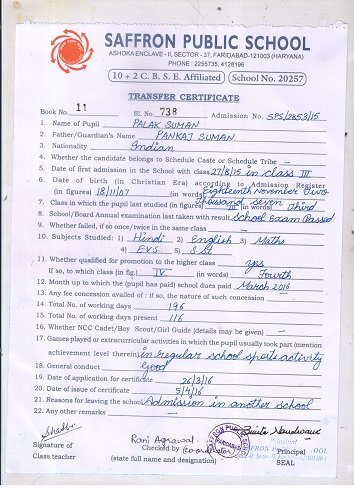 SAFFRON PUBLIC SCHOOL
ASHOKA ENCLAVE - II, SECTOR - 37, FARIDABAD-121003 (HARYANA)
PHONE : 2255735, 4128196
10 + 2 C. B. S. E. Affiliated School No. 20257
TRANSFER CERTIFICATE
Book No. 11 Sl. No. 738 Admission No. SPS/2853/15
1. Name of Pupil PALAK SUMAN
2. Father/Guardian's Name PANKAJ SUMAN
3. Nationality Indian
4. Whether the candidate belongs to Schedule Caste or Schedule Tribe –
5. Date of first admission in the School with class 27/8/15 in class III
6. Date of birth (in Christian Era) according to Admission Register
(in figures) 18/11/07 (in words) Eighteenth November Two
Thousand seven
7. Class in which the pupil last studied (in figures) III (in words) Third
8. School/Board Annual examination last taken with result School Exam Passed
9. Whether failed, if so once/twice in the same class –
10. Subjects Studied: 1) Hindi 2) English 3) Maths
4) EVS 5) S.St
11. Whether qualified for promotion to the higher class yes
If so, to which class (in fig.) IV (in words) Fourth
12. Month up to which the (pupil has paid) school dues paid March 2016
13. Any fee concession availed of : if so, the nature of such concession –
14. Total No. of working days 196
15. Total No. of working days present 116
16. Whether NCC Cadet/Boy Scout/Girl Guide (details may be given) –
17. Games played or extracurricular activities in which the pupil usually took part (mention
achievement level therein) in regular school sports activity
18. General conduct Good
19. Date of application for certificate 26/3/16
20. Date of issue of certificate 5/4/16
21. Reasons for leaving the school Admission in another school
22. Any other remarks –
Signature of
Class teacher
Rani Agrawal
Checked by Co-ordinator
(state full name and designation)
Principal
SEAL